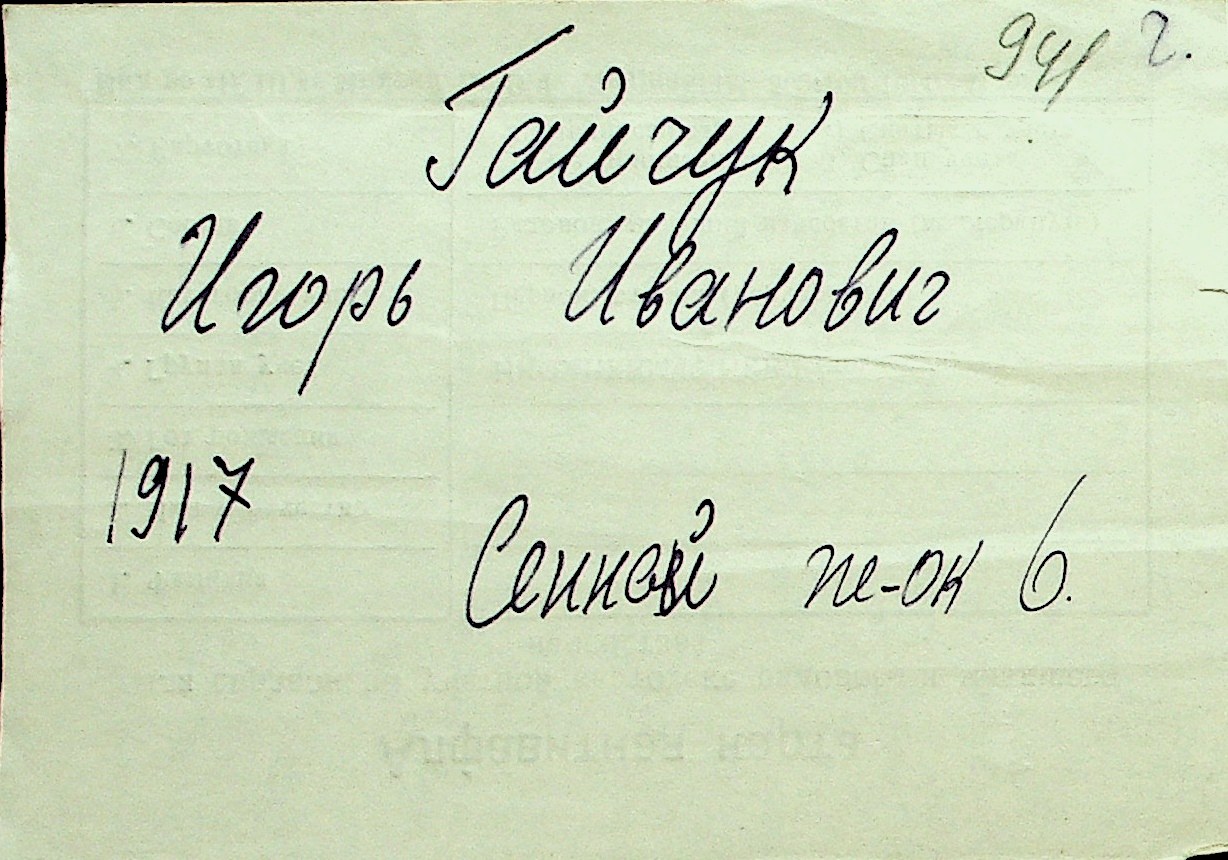 941 г.
Гайчук
Игорь Иванович
1917
Сенной пе-ок 6.